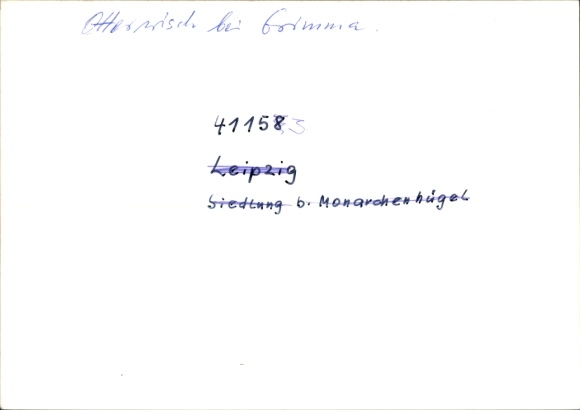 Otterwisch bei Grimma.
411583
Leipzig
Siedlung b. Monarchenhügel